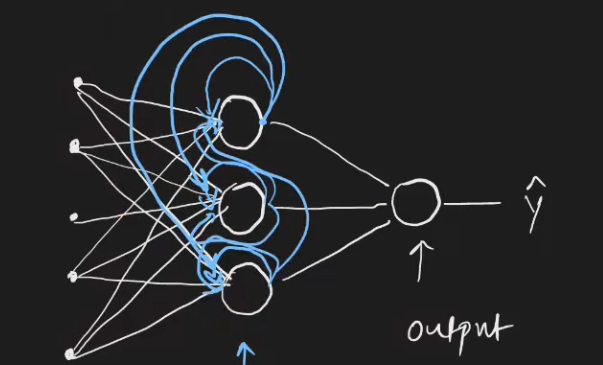 ŷ
output